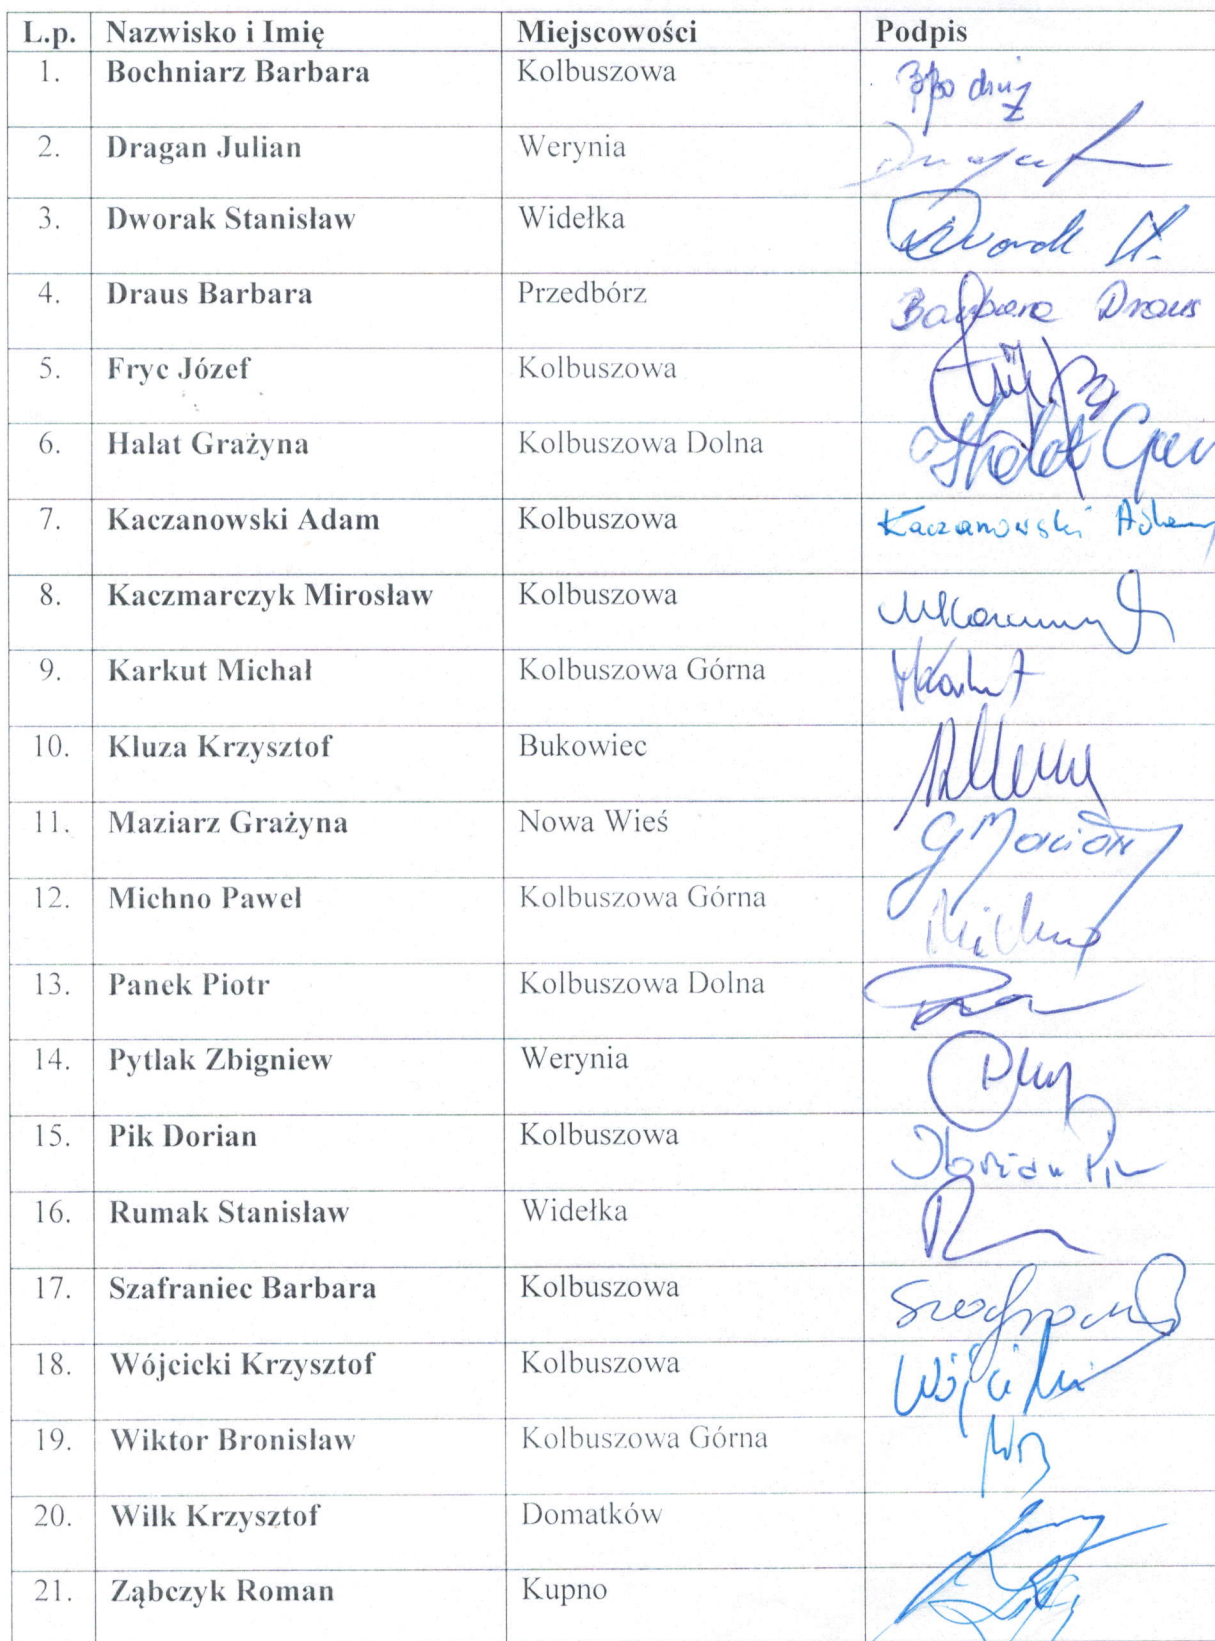 L.p. Nazwisko i Imię Miejscowości Podpis
1. Bochniarz Barbara Kolbuszowa
2. Dragan Julian Werynia
3. Dworak Stanisław Widełka Dworak St.
4. Draus Barbara Przedbórz Barbara Draus
5. Fryc Józef Kolbuszowa
6. Halat Grażyna Kolbuszowa Dolna Halat
7. Kaczanowski Adam Kolbuszowa Kaczanowski Adam
8. Kaczmarczyk Mirosław Kolbuszowa
9. Karkut Michał Kolbuszowa Górna MKarkut
10. Kluza Krzysztof Bukowiec
11. Maziarz Grażyna Nowa Wieś G Maziarz
12. Michno Paweł Kolbuszowa Górna Michno
13. Panek Piotr Kolbuszowa Dolna
14. Pytlak Zbigniew Werynia
15. Pik Dorian Kolbuszowa Dorian Pik
16. Rumak Stanisław Widełka
17. Szafraniec Barbara Kolbuszowa
18. Wójcicki Krzysztof Kolbuszowa Wójcicki
19. Wiktor Bronisław Kolbuszowa Górna
20. Wilk Krzysztof Domatków
21. Ząbczyk Roman Kupno